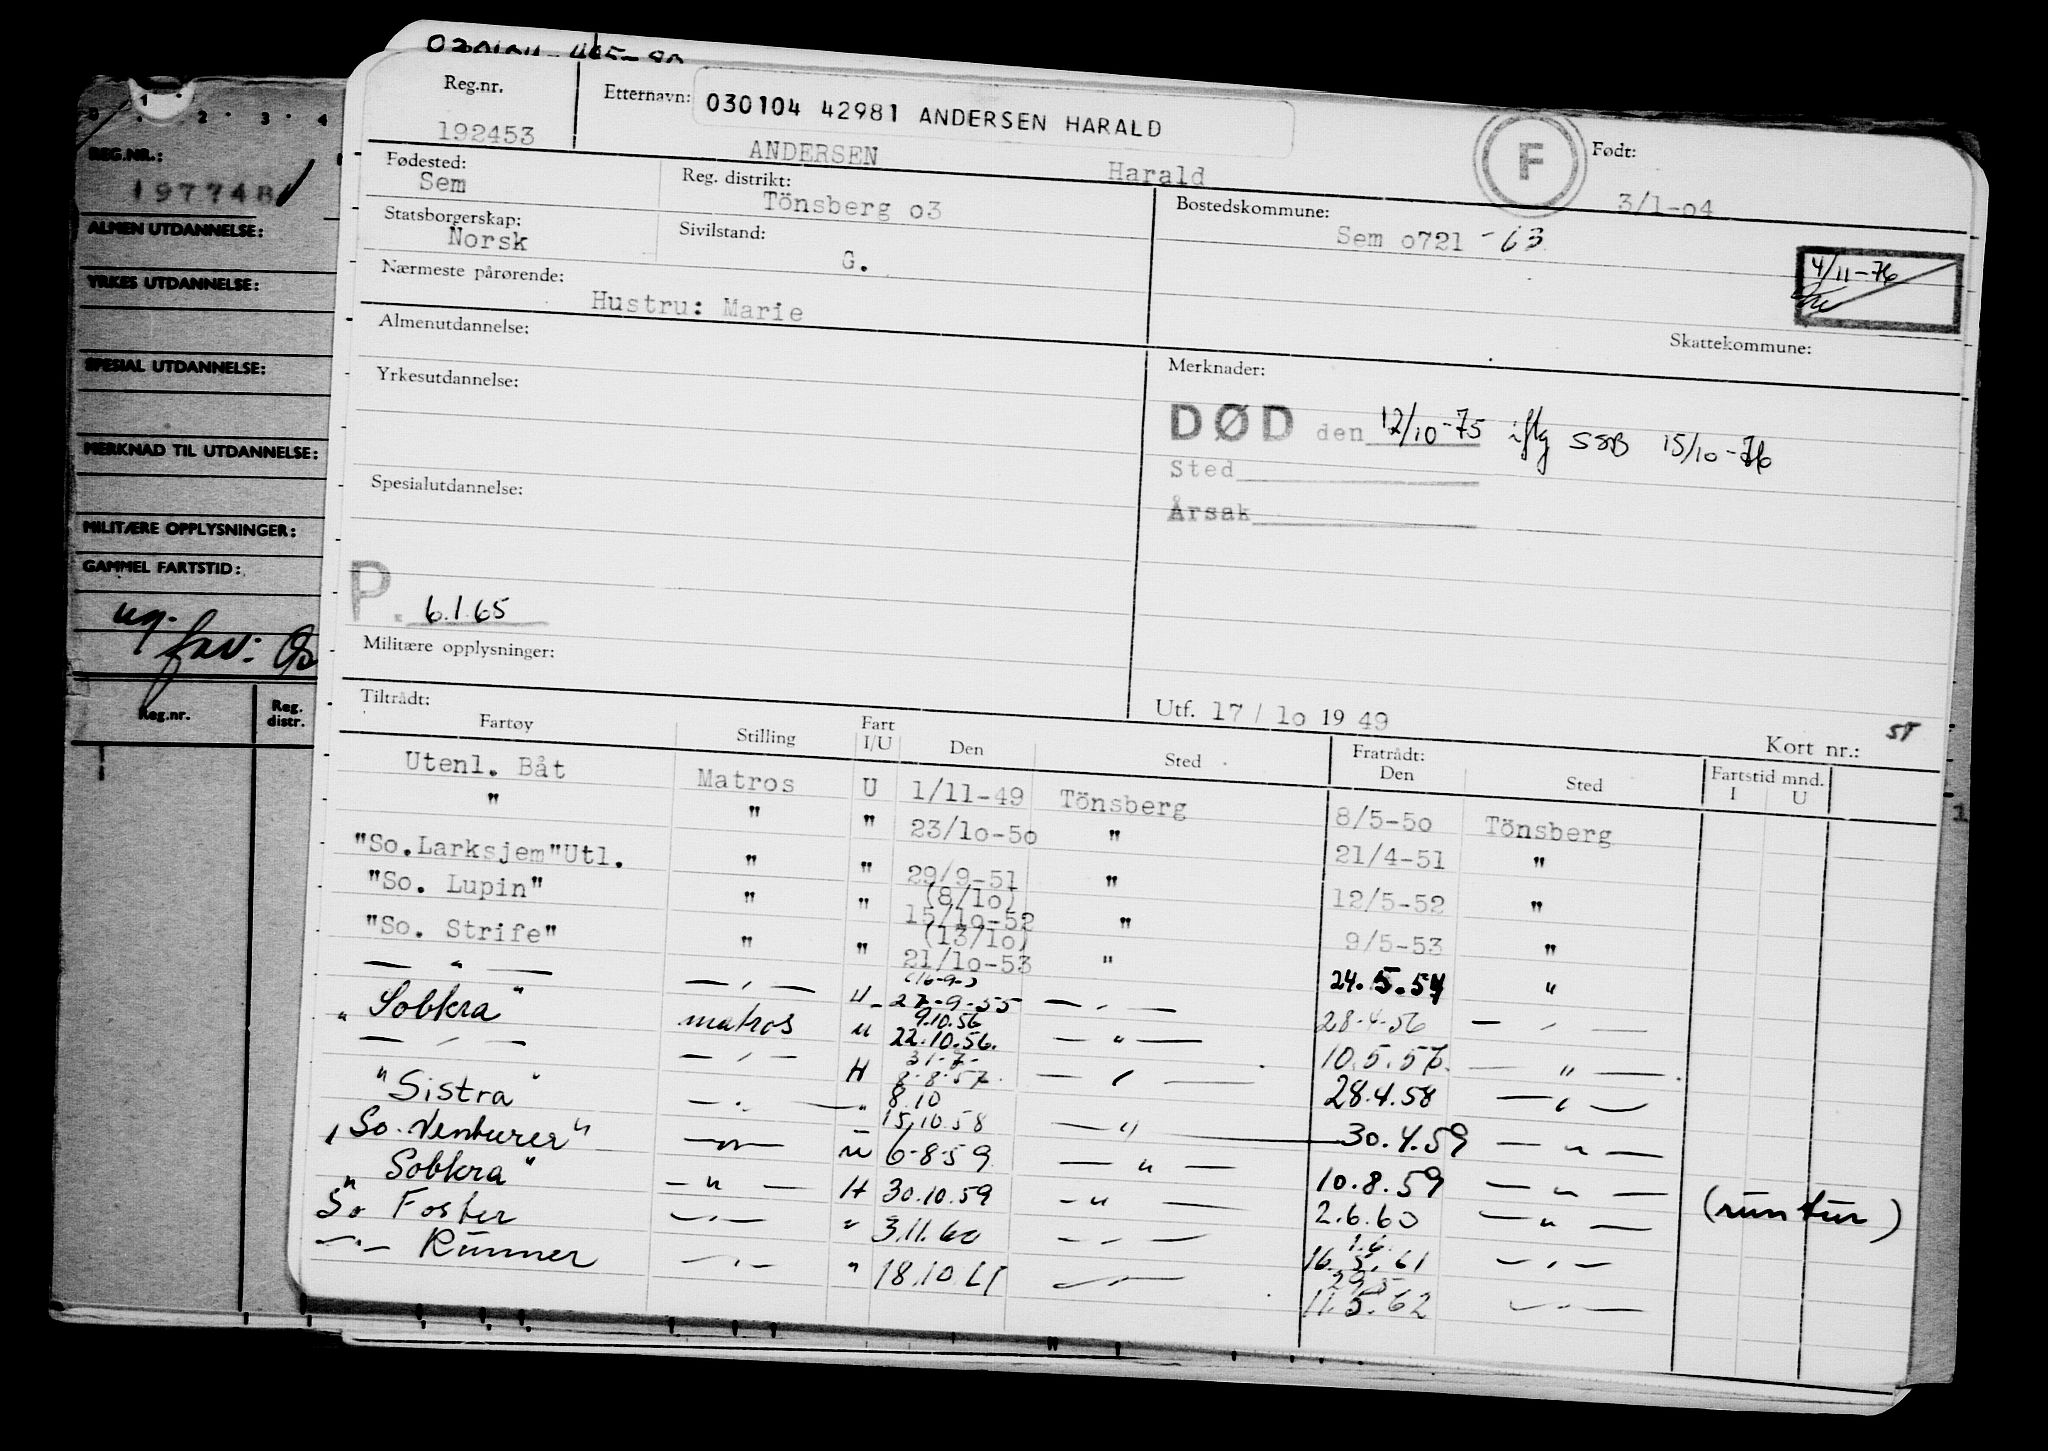 Reg.nr.
192453
Etternavn: 030104 42981 ANDERSEN HARALD
ANDERSEN Harald
F
Født:
3/1-o4
Fødested:
Sem
Reg. distrikt:
Tönsberg o3
Bostedskommune:
Sem o721 -63
Statsborgerskap:
Norsk
Sivilstand:
G.
4/11-76
Nærmeste pårørende:
Hustru: Marie
Skattekommune:
Almenutdannelse:
Merknader:
Yrkesutdannelse:
DØD den 12/10-75 iflg SSB 15/10-76
Sted
Årsak
Spesialutdannelse:
P. 6.1.65
Militære opplysninger:
Utf. 17 / 1o 19 49
Kort nr.:
Tiltrådt:
Fartøy Stilling Fart I/U Den Sted Fratrådt: Den Sted Fartstid mnd. I U
Utenl. Båt Matros U 1/11-49 Tönsberg 8/5-5o Tönsberg
" " " 23/1o-5o " 21/4-51 "
"So.Larksjem"Utl. " " 29/9-51 " 12/5-52 "
(8/1o)
"So. Lupin" " " 15/1o-52 " 9/5-53 "
(13/1o)
"So. Strife" " " 21/1o-53 " 24.5.54 "
(16-9-)
— " — — " — U- 27-9-55 — " — 28.4.56 — " —
9.10.56
" Sobkra " matros u 22.10.56. — " — 10.5.57. — " —
31-7-
— " — — " — H 8-8-57. — " — 28.4.58 — " —
8.10
" Sistra " — " — " 15.10.58 — " — 30.4.59 — " —
"So. Venturer" — " — u 6-8-59 — " — 10.8.59 — " — (rúntur)
" Sobkra " — " — H 30.10.59 — " — 2.6.60 — " —
1.6.
So Foster — " — " 3.11.60 — " — 16.5.61 — " —
29.5
— " — Runner — " — " 18.10.61 — " — 11.5.62 — " —
1 2 3 4
REG.NR.:
197748
ALMEN UTDANNELSE:
YRKES UTDANNELSE:
SPESIAL UTDANNELSE:
MERKNAD TIL UTDANNELSE:
MILITÆRE OPPLYSNINGER:
GAMMEL FARTSTID:
Reg.nr.
Reg. distr.